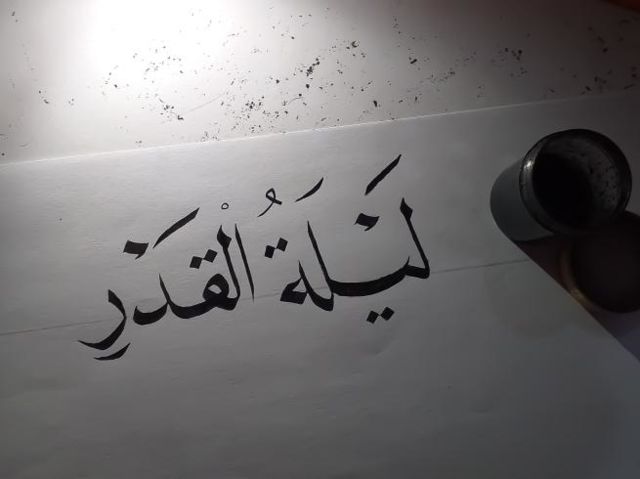 لَيْلَةُ الْقَدْرِ